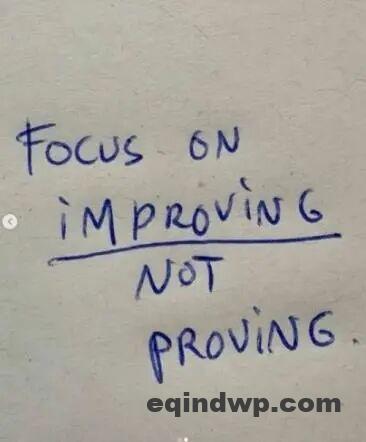 FOCUS ON
iMPROViNG
NOT
PROViNG.
eqindwp.com